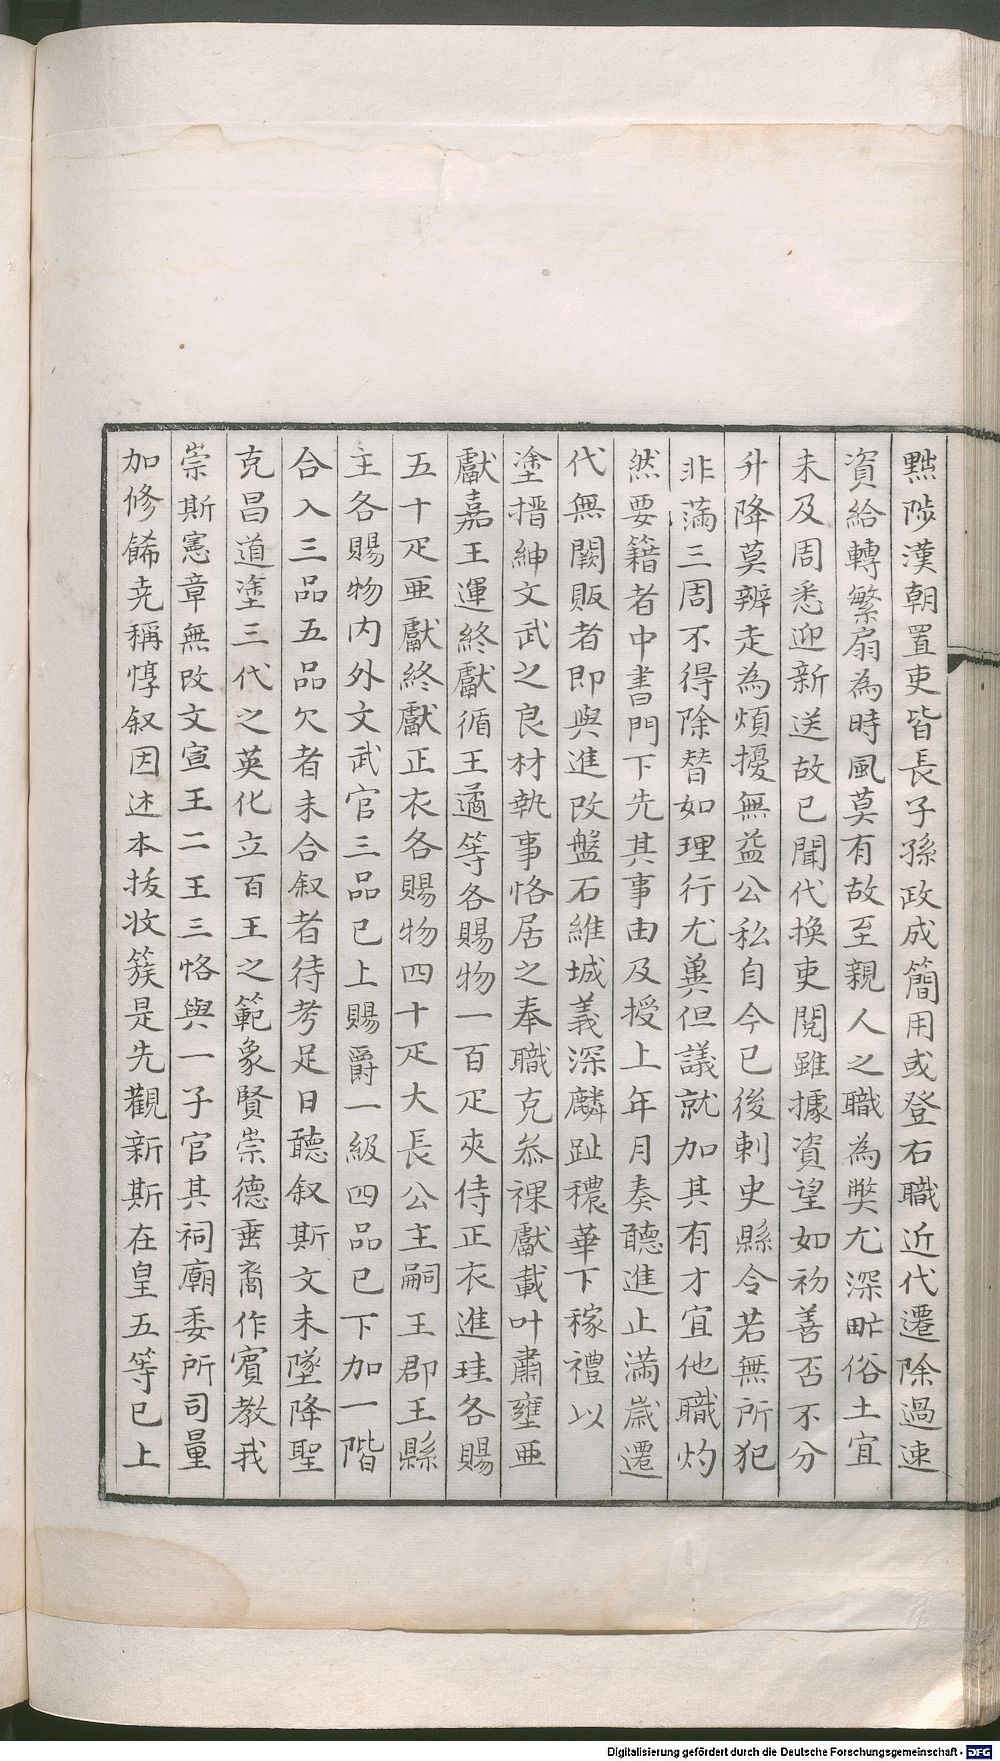 黜陟漢朝置吏皆長子孫政成簡用或登右職近代遷除過速
資給轉繁扇為時風莫有故至親人之職為獘尤深甿俗土宜
未及周悉迎新送故已聞代換吏閱雖據資望如初善否不分
升降莫辨走為煩擾無益公私自今已後刺史縣令若無所犯
非滿三周不得除替如理行尤異但議就加其有才宜他職灼
然要籍者中書門下先其事由及授上年月奏聽進止滿歲遷
代無闕販者即與進改盤石維城義深麟趾穠華下稼禮以
塗搢紳文武之良材執事恪居之奉職克叅祼獻載叶肅雍亜
獻嘉王運終獻循王遹等各賜物一百疋夾侍正衣進珪各賜
五十疋亜獻終獻正衣各賜物四十疋大長公主嗣王郡王縣
主各賜物内外文武官三品已上賜爵一級四品已下加一階
合入三品五品欠者未合叙者待考足日聽叙斯文未墜降聖
克昌道塗三代之英化立百王之範象賢崇德垂裔作賓教我
崇斯憲章無改文宣王二王三恪與一子官其祠廟委所司量
加修餙尭稱惇叙因述本抜妝簇是先觀新斯在皇五等已上
Digitalisierung gefördert durch die Deutsche Forschungsgemeinschaft - DFG